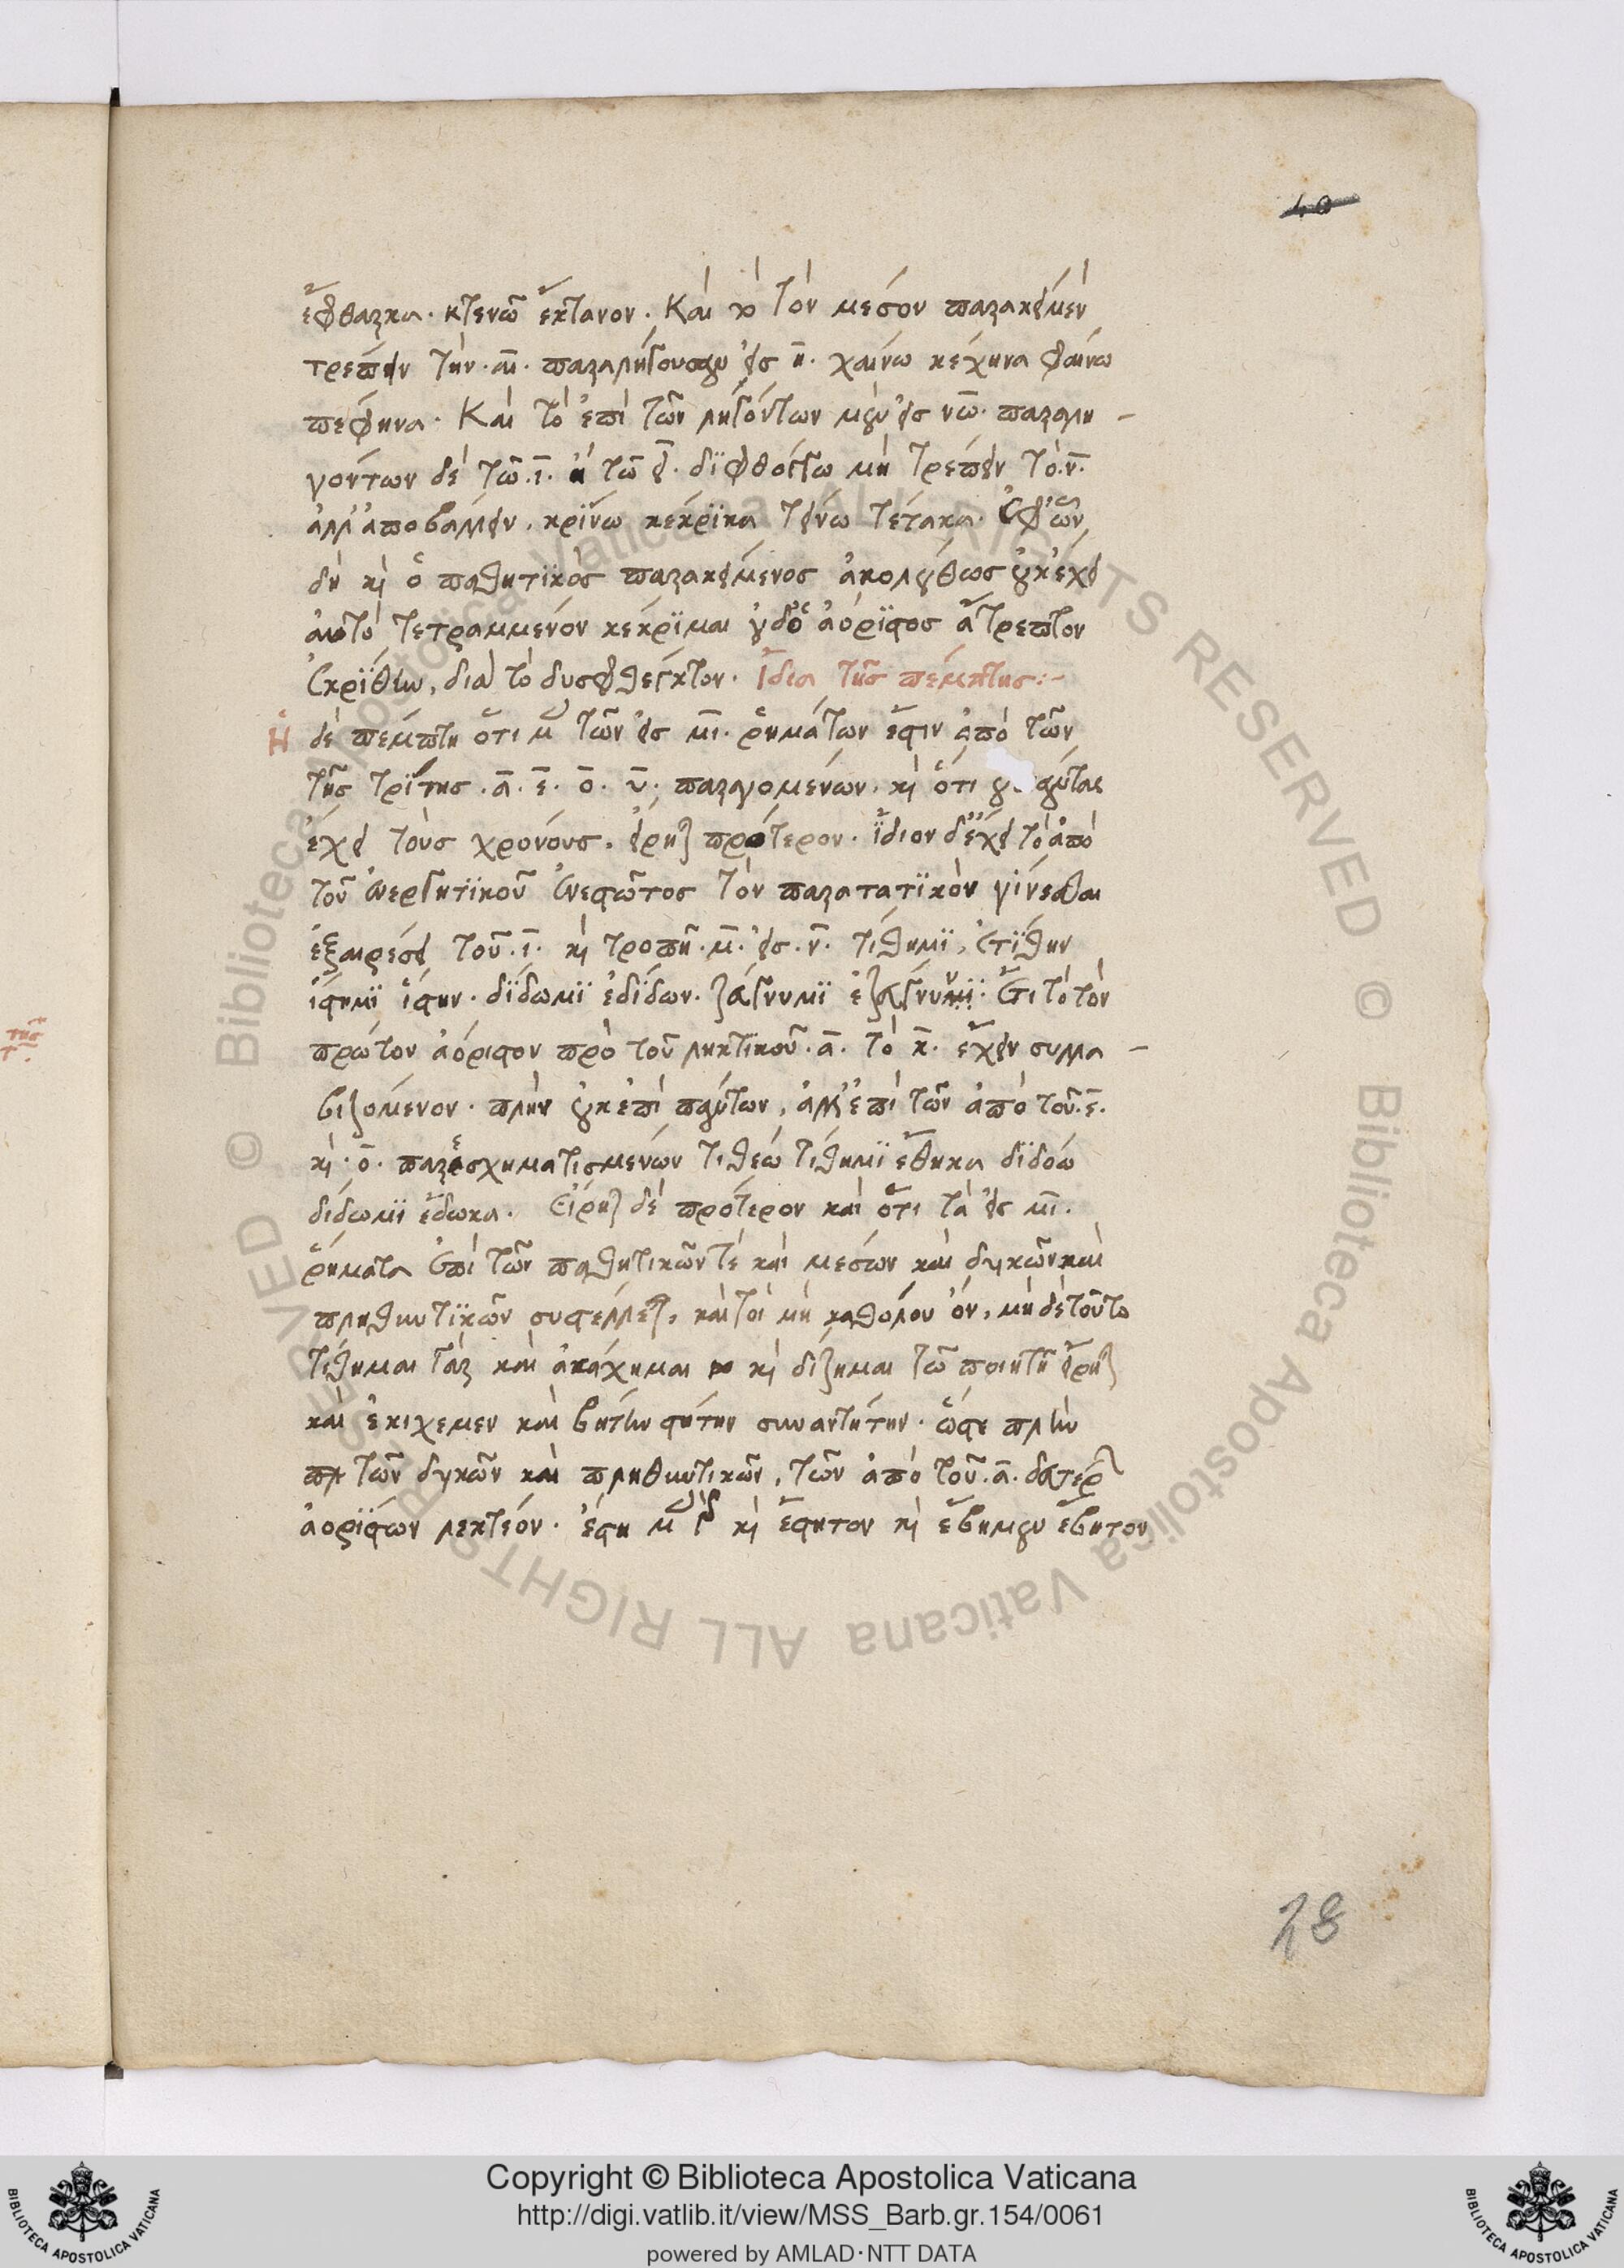 40
ἔφθαρκα. κτενῶ ἔκτανον. Καὶ τὸν μέσον παρακείμεν
τρέπειν τὴν. αι. παραλήγουσαν εἰς η. χαίνω κέχηνα φαίνω
πέφηνα. Καὶ τὸ ἐπὶ τῶν ληγόντων μὲν εἰς νω. παραλη-
γόντων δὲ τῶ. ι. ἢ τῶ ει. διφθόγγω μὴ τρέπειν τὸ. ν.
ἀλλ' ἀποβάλλειν. κρίνω κέκρικα τείνω τέτακα. ἐφ' ὧν
δὴ καὶ ὁ παθητικὸς παρακείμενος ἀκολούθως οὐκ ἔχει
αὐτὸ τετραμμένον κέκριμαι οὐδ' ὁ ἀόριστος ἄτρεπτον
ἐκρίθην, διὰ τὸ δύσφθεγκτον. Ἴδια τῆς πέμπτης:-
Ἡ δὲ πέμπτη ὅτι μὲν τῶν εἰς μι. ῥημάτων ἐστὶν ἀπὸ τῶν
τῆς τρίτης. α. ε. ο. υ. παραγομένων. καὶ ὅτι πάντας
ἔχει τοὺς χρόνους. εἴρηται πρότερον. ἴδιον δ' ἔχει τὸ ἀπὸ
τοῦ ἐνεργητικοῦ ἐνεστῶτος τὸν παρατατικὸν γίνεσθαι
ἐξαιρέσει τοῦ. ι. καὶ τροπῆ. μ. εἰς. ν. τίθημι, ἐτίθην
ἵστημι ἵστην. δίδωμι ἐδίδων. ζεύγνυμι ἐζεύγνυν. ἔτι τὸ τὸν
πρῶτον ἀόριστον πρὸ τοῦ ληκτικοῦ. α. τὸ κ. ἔχειν συλλα-
βιζόμενον. πλὴν οὐκ ἐπὶ πάντων, ἀλλ' ἐπὶ τῶν ἀπὸ τοῦ. ε.
καὶ. ο. παρεσχηματισμένων τιθέω τίθημι ἔθηκα διδόω
δίδωμι ἔδωκα. Εἴρηται δὲ πρότερον καὶ ὅτι τὰ εἰς μι.
ῥήματα ἐπὶ τῶν παθητικῶν τὲ καὶ μέσων καὶ δυικῶν καὶ
πληθυντικῶν συστέλλεται, καίτοι μὴ καθόλου ὂν, μηδὲ τοῦτο
τίθημαι γὰρ καὶ ἀκάχημαι καὶ δίζημαι τῶ ποιητῆ εἴρηται
καὶ ἐκίχεμεν καὶ βήτην στήτην συναντήτην. ὥστε πλὴν
τῶν δυικῶν καὶ πληθυντικῶν, τῶν ἀπὸ τοῦ. α. δευτέρων
ἀορίστων λεκτέον. ἔστη μὲν γὰρ καὶ ἔστητον καὶ ἔβημεν ἔβητον
28
Copyright © Biblioteca Apostolica Vaticana
http://digi.vatlib.it/view/MSS_Barb.gr.154/0061
powered by AMLAD·NTT DATA